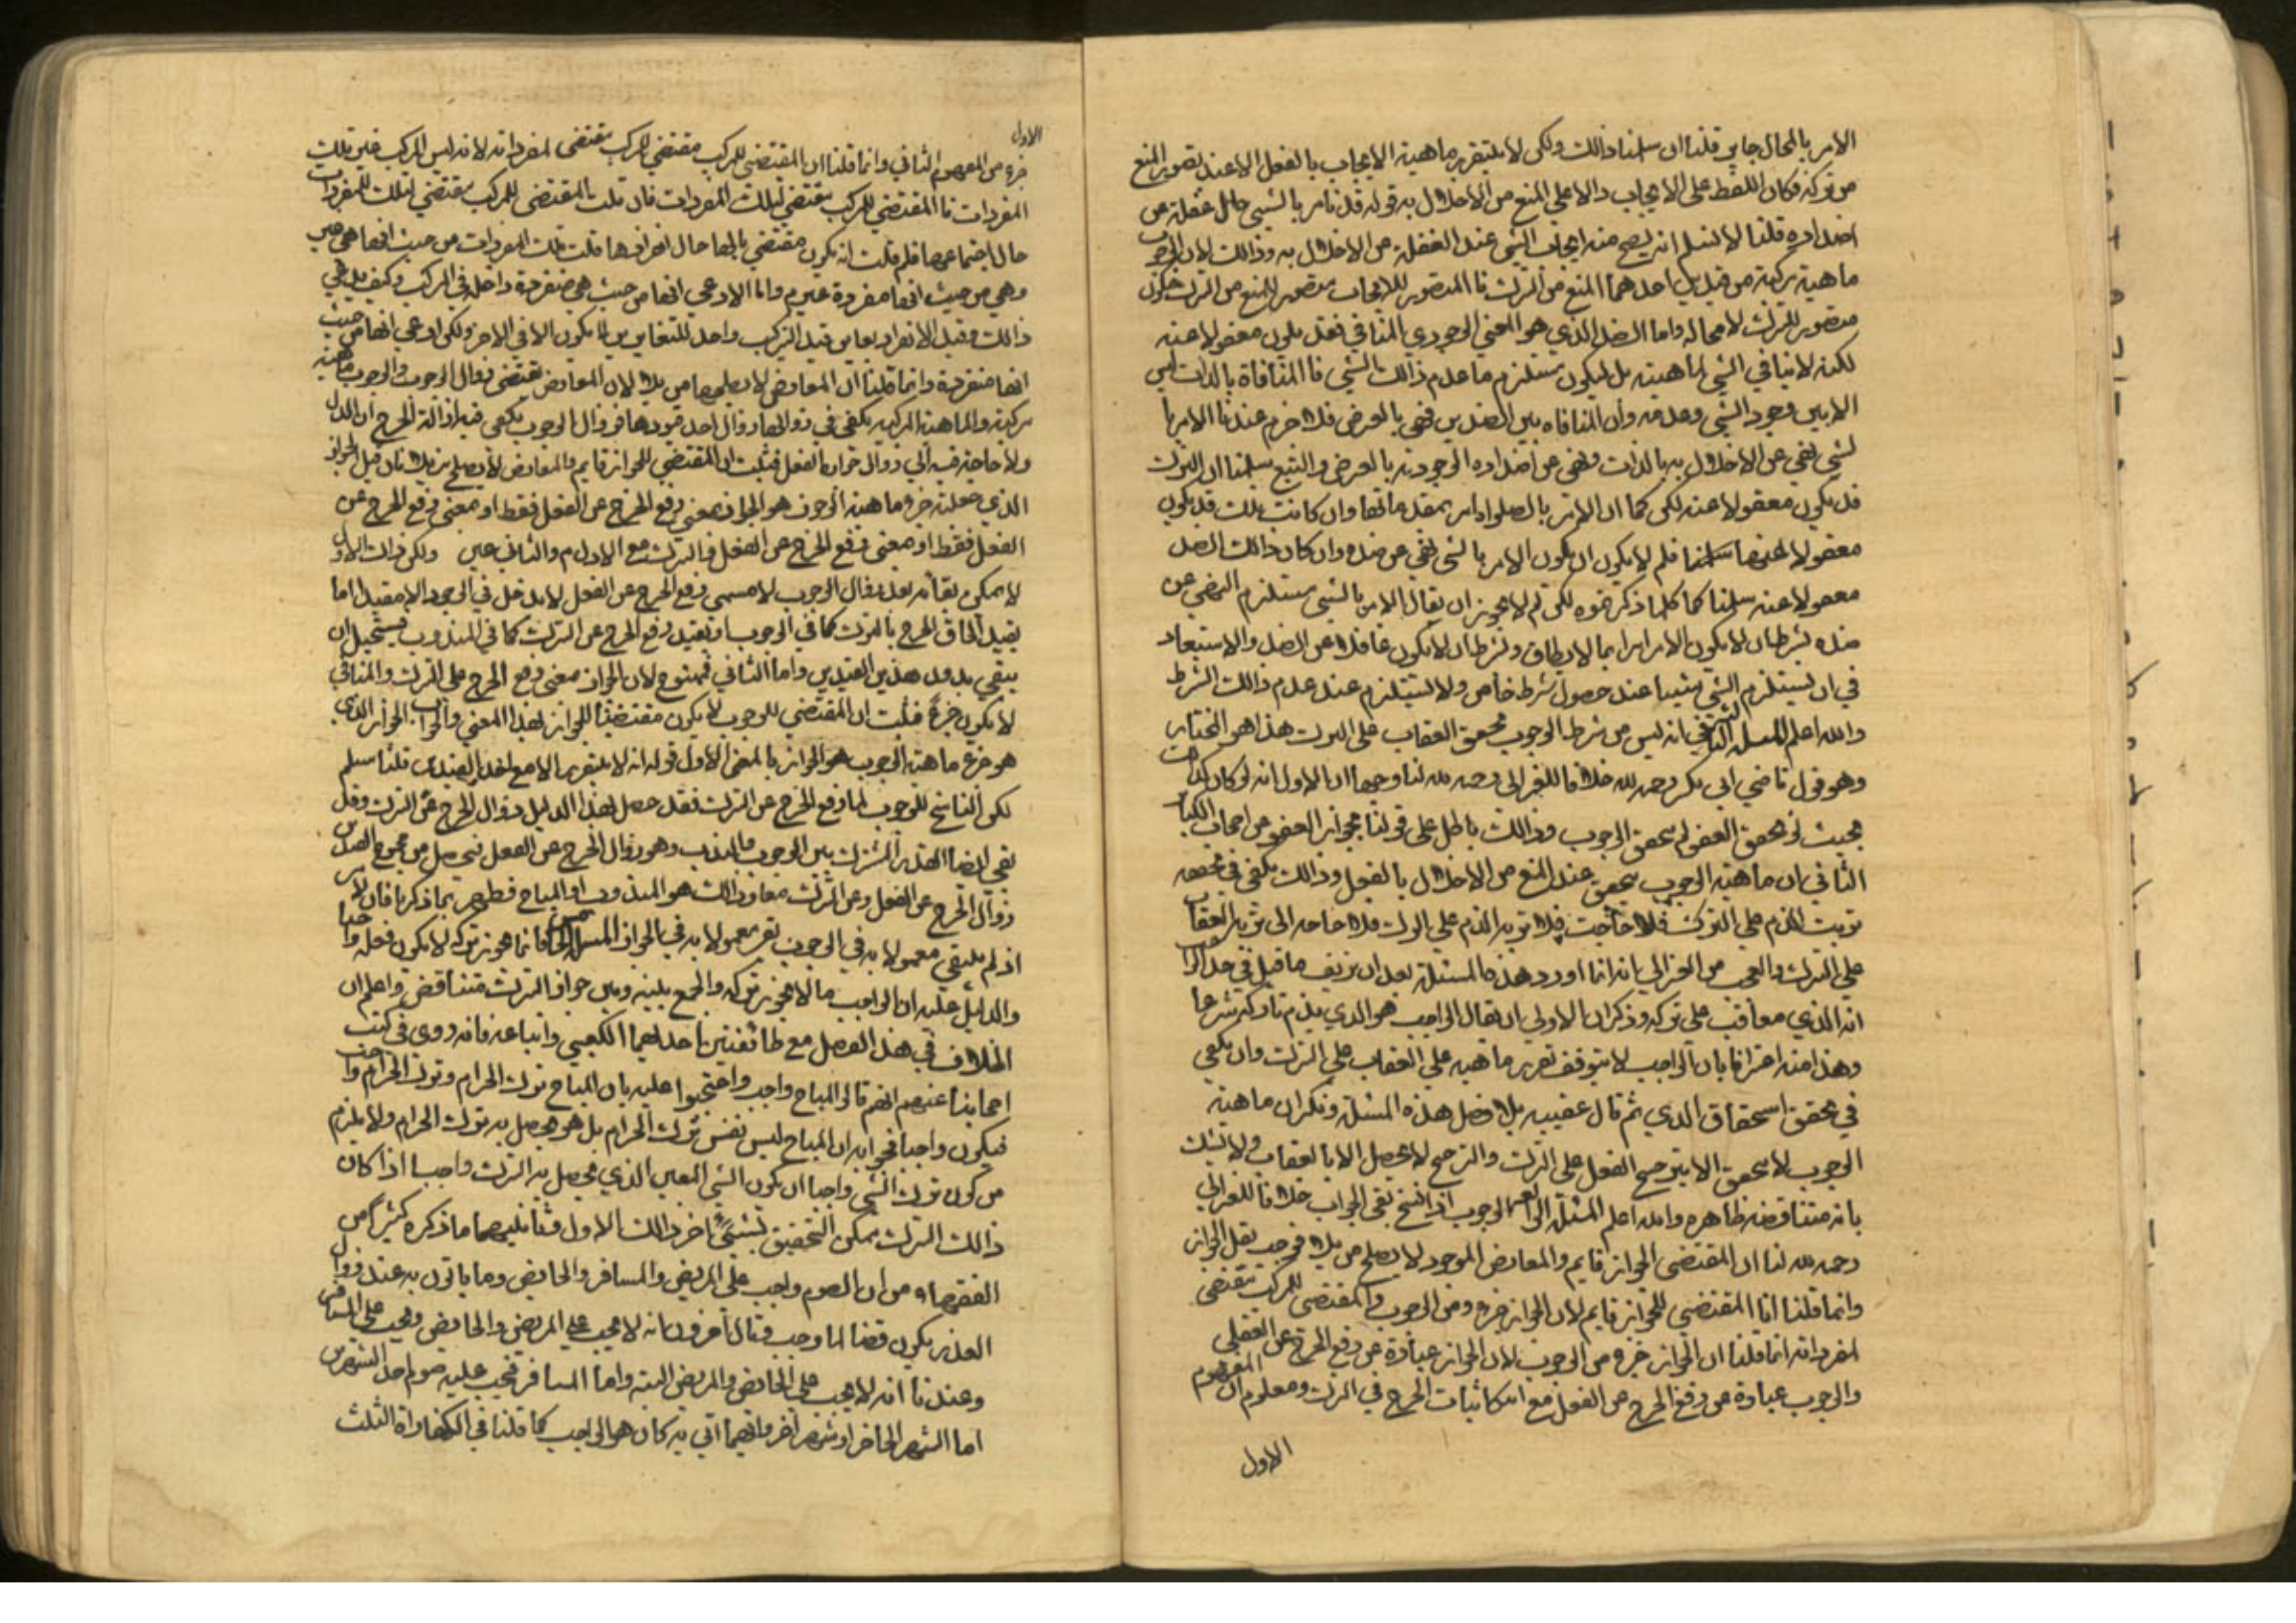 الامر بالمحال جايز قلنا ان سلمنا ذالك ولكن لا يتقرر ماهية الايجاب بالفعل الا عند تصور المنع
من تركه فكان اللفظ على الايجاب دالا على المنع من الاخلال به قوله قد نامر بالشيء حال غفلة عن
اضداده قلنا لا نسلم انه يصح منه ايجاب الشي عند الغفلة عن الاخلال به وذالك لان الوجوب
ماهية مركبة من قيدين احدهما المنع من الترك فا المتصور للايجاب متصور للمنع من الترك فيكون
متصور للترك لا محاله واما الضد الذي هو المعنى الوجودي المنافي فقد يكون مغفولا عنه
لكنه لا ينافي الشي لماهيته بل لكونه مستلزم ما عدم ذالك الشي فا المنافاة بالذات ليس
الا بين وجود الشي وعدمه وأن المنافاه بين الضدين فهي بالعرض فلا خرم عندنا الامر با
لشي نهي عن الاخلال به بالذات ونهي عن اضداده الوجودية بالعرض والتبع سلمنا ان الترك
قد يكون مغفولا عنه لكن كما ان الامر بالصلوة امر بمقدماتها وان كانت تلك قد يكون
مغفولا عنها سلمنا فلم لا يكون ان يكون الامر بالشي نهي عن ضده وان كان ذالك الضد
مغفولا عنه سلمنا كما كلما ذكرتموه لكن لم لا يجوز ان يقال الامر بالشي يستلزم النهي عن
ضده بشرط ان لا يكون الامر امرا بما لا يطاق وبشرط ان لا يكون غافلا عن الضد والاستبعاد
في ان يستلزم الشي شيئا عند حصول شرط خاص ولا يستلزم عند عدم ذالك الشرط
والله اعلم المسئلة الثالثة في انه ليس من شرط الوجوب تحقق العقاب على الترك هذا هو المختار
وهو قول قاضي ابي بكر رحمه لله خلافا للغزالي رحمه لله لنا وجهان الاول انه لو كان كذالك
بحيث لو تحقق العفو لم يتحقق الوجوب وذالك باطل على قولنا بجواز العفو عن اصحاب الكباير
الثاني ان ماهية الوجوب يتحقق عند المنع من الاخلال بالفعل وذالك يكفي في تحققه
ترتب الذم على الترك فلا حاجت فلا ترتب الذم على الترك فلا حاجه الى ترتب العقاب
على الترك والعجب من الغزالي انه انما اورد هذه المسئلة بعد ان زيف ما قيل في حد الواجب
انه الذي معاقب على تركه وذكر ان الاولى ان يقال الواجب هو الذي يذم تاركه شرعا
وهذا منه اعترافا بان الواجب لا يتوقف تقرير ماهيه على العقاب على الترك وان يكفي
في تحقق استحقاق الذي ثم قال عقيبه بلا فصل هذه المسئلة وذكر ان ماهية
الوجوب لا يتحقق الا بترجيح الفعل على الترك والترجيح لا يحصل الا بالعقاب ولا شك
بانه متناقضه ظاهره والله اعلم المسئلة الرابعة الوجوب اذا نسخ بقي الجواز خلافا للغزالي
رحمه لله لنا ان المقتضى الجواز قايم والمعارض الموجود لا يصلح مزيلا فوجب بقاء الجواز
وانما قلنا انا المقتضى للجواز قايم لان الجواز جزء ومن الوجوب والمقتضى للمركب مقتضى
لمفرداته انما قلنا ان الجواز جزء من الوجوب لان الجواز عبارة عن رفع الحرج عن الفعل
والوجوب عبارة عن رفع الحرج عن الفعل مع اثبات الحرج في الترك ومعلوم ان المفهوم
الاول
الاول
جزء من المفهوم الثاني وانما قلنا ان المقتضي للمركب مقتضي للمركب مقتضى لمفرداته لانه ليس المركب غير تلك
المفردات فا المقتضي للمركب مقتضي لتلك المفردات فان قلت المقتضى للمركب مقتضي لتلك المفردات
حال اجتماعها فلم قلت انه يكون مقتضي بالها حال انفرادها قلت تلك المفردات من حيث انها هي هي
وهي من حيث انها مفردة غير وانا لا ادعي انها من حيث هي منفردة داخلة في المركب وكيف يدعي
ذالك وقيد الانفراد يعاير قيد التركيب واحد المتغايرين لا يكون الا في الاخر ولكن ادعي انها من حيث
انها منفردة وانما قلنا ان المعارض لا يصلح مزيلا لان المعارض يقتضي زوال الوجوب والوجوب ماهيه
مركبة والماهية المركبه يكفي في زوالها زوال احد قيودها فزوال الوجوب يكفي فيه ازالة الحرج عن الترك
ولا حاجة فيه الي زوال جواز الفعل فثبت ان المقتضي للجواز قايم والمعارض لا يصلح مزيلا فان قيل الجواز
الذي جعلته جزء ماهية الوجوب هو الجواز بمعنى رفع الحرج عن الفعل فقط او بمعنى رفع الحرج عن
الفعل فقط او بمعنى رفع الحرج عن الفعل والترك مع الاول م والثاني ولكن ذات الاول
لا يمكن بقاءه بعد زوال الوجوب لا مسمى رفع الحرج عن الفعل لا يدخل في الوجود الا مقيدا اما
بقيد الحاق الحرج بالترك كما في الوجوب او بقيد رفع الحرج عن الترك كما في المندوب فيستحيل ان
يبقي بدون هذين القيدين واما الثاني فممنوع لان الجواز بمعنى رفع الحرج على الترك والمنافي
لا يكون جزء فثبت ان المقتضي للوجوب لا يكون مقتضيا للجواز بهذا المعنى والجواب الجواز الذي
هو جزء ماهية الوجوب هو الجواز بالمعنى الاول قوله انه لا يتقرر الا مع احد القيدين قلنا سلم
لكن الناسخ للوجوب لما رفع الحرج عن الترك فقد حصل بهذا الدليل زوال الحرج عن الترك وقد
بقي ايضا القدر المشترك بين الوجوب والندب وهو زوال الحرج عن الفعل فيحصل من مجموع القدرين
زوال الحرج عن الفعل وعن الترك معا وذالك هو المندوب او المباح فظهر بما ذكرنا فان الامر
اذ لم يبقي معمولا به في الوجوب بقي معمولا به في الجواز المسئلة الخامسة فانما هو جوز تركه لا يكون فعله واجبا
والدليل عليه ان الواجب ما لا يجوز تركه والجمع بينه وبين جواز الترك متناقض واعلم ان
الخلاف في هذا الفصل مع طائفتين احداهما الكعبي واتباعه فانه روى في كتب
اصحابنا عنهم انهم قالوا المباح واجب واحتجوا عليه بان المباح ترك الحرام وترك الحرام واجب
فيكون واجبا فجوابه ان المباح ليس نفس ترك الحرام بل هو يحصل به ترك الحرام ولا يلزم
من كون ترك الشي واجبا ان يكون الشي المعين الذي يحصل به الترك واجبا اذا كان
ذالك الترك يمكن التحقيق بشيء اخر ذالك الاول وثانيهما ما ذكره كثيرا من
الفقهاء من ان الصوم واجب على المريض والمسافر والحايض وما ياتون به عند زوال
العذر يكون قضا لما وجب وقال اخرون انه لا يجب على المريض والحايض ويجب على المسافر
وعندنا انه لا يجب على الحايض والمريض البته واما المسافر فيجب عليه صوم احد الشهرين
اما الشهر الحاضر او شهر اخر وايهما اتي به كان هو الواجب كما قلنا في الكفارة الثلث